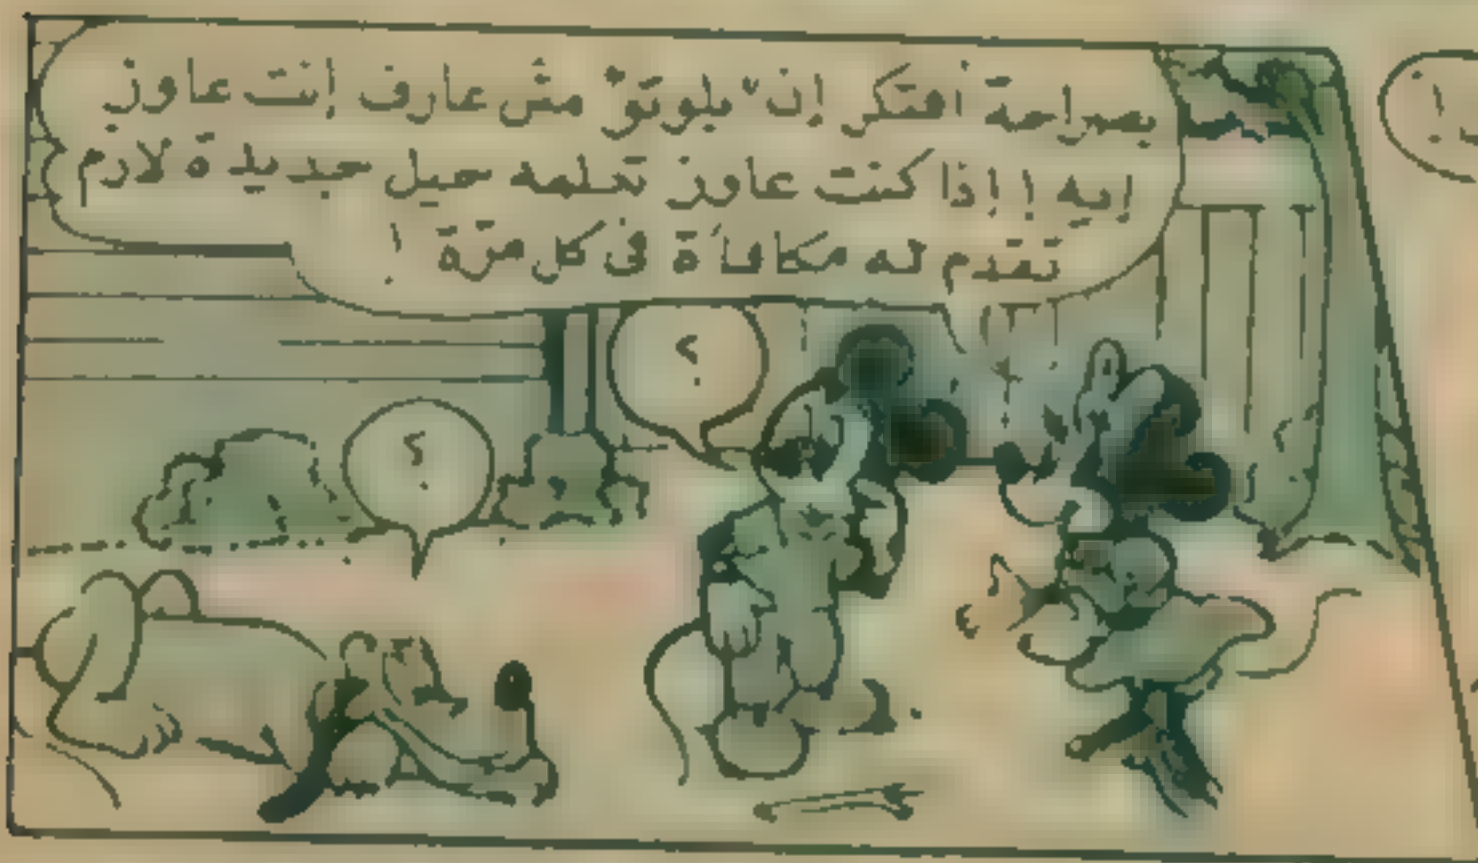 بصراحة أفتكر إن "بلوتو" مش عارف إنت عاوز
إيه ! إذا كنت عاوز تعلمه حيل جديدة لازم
تقدم له مكافأة فى كل مرّة !
؟
؟